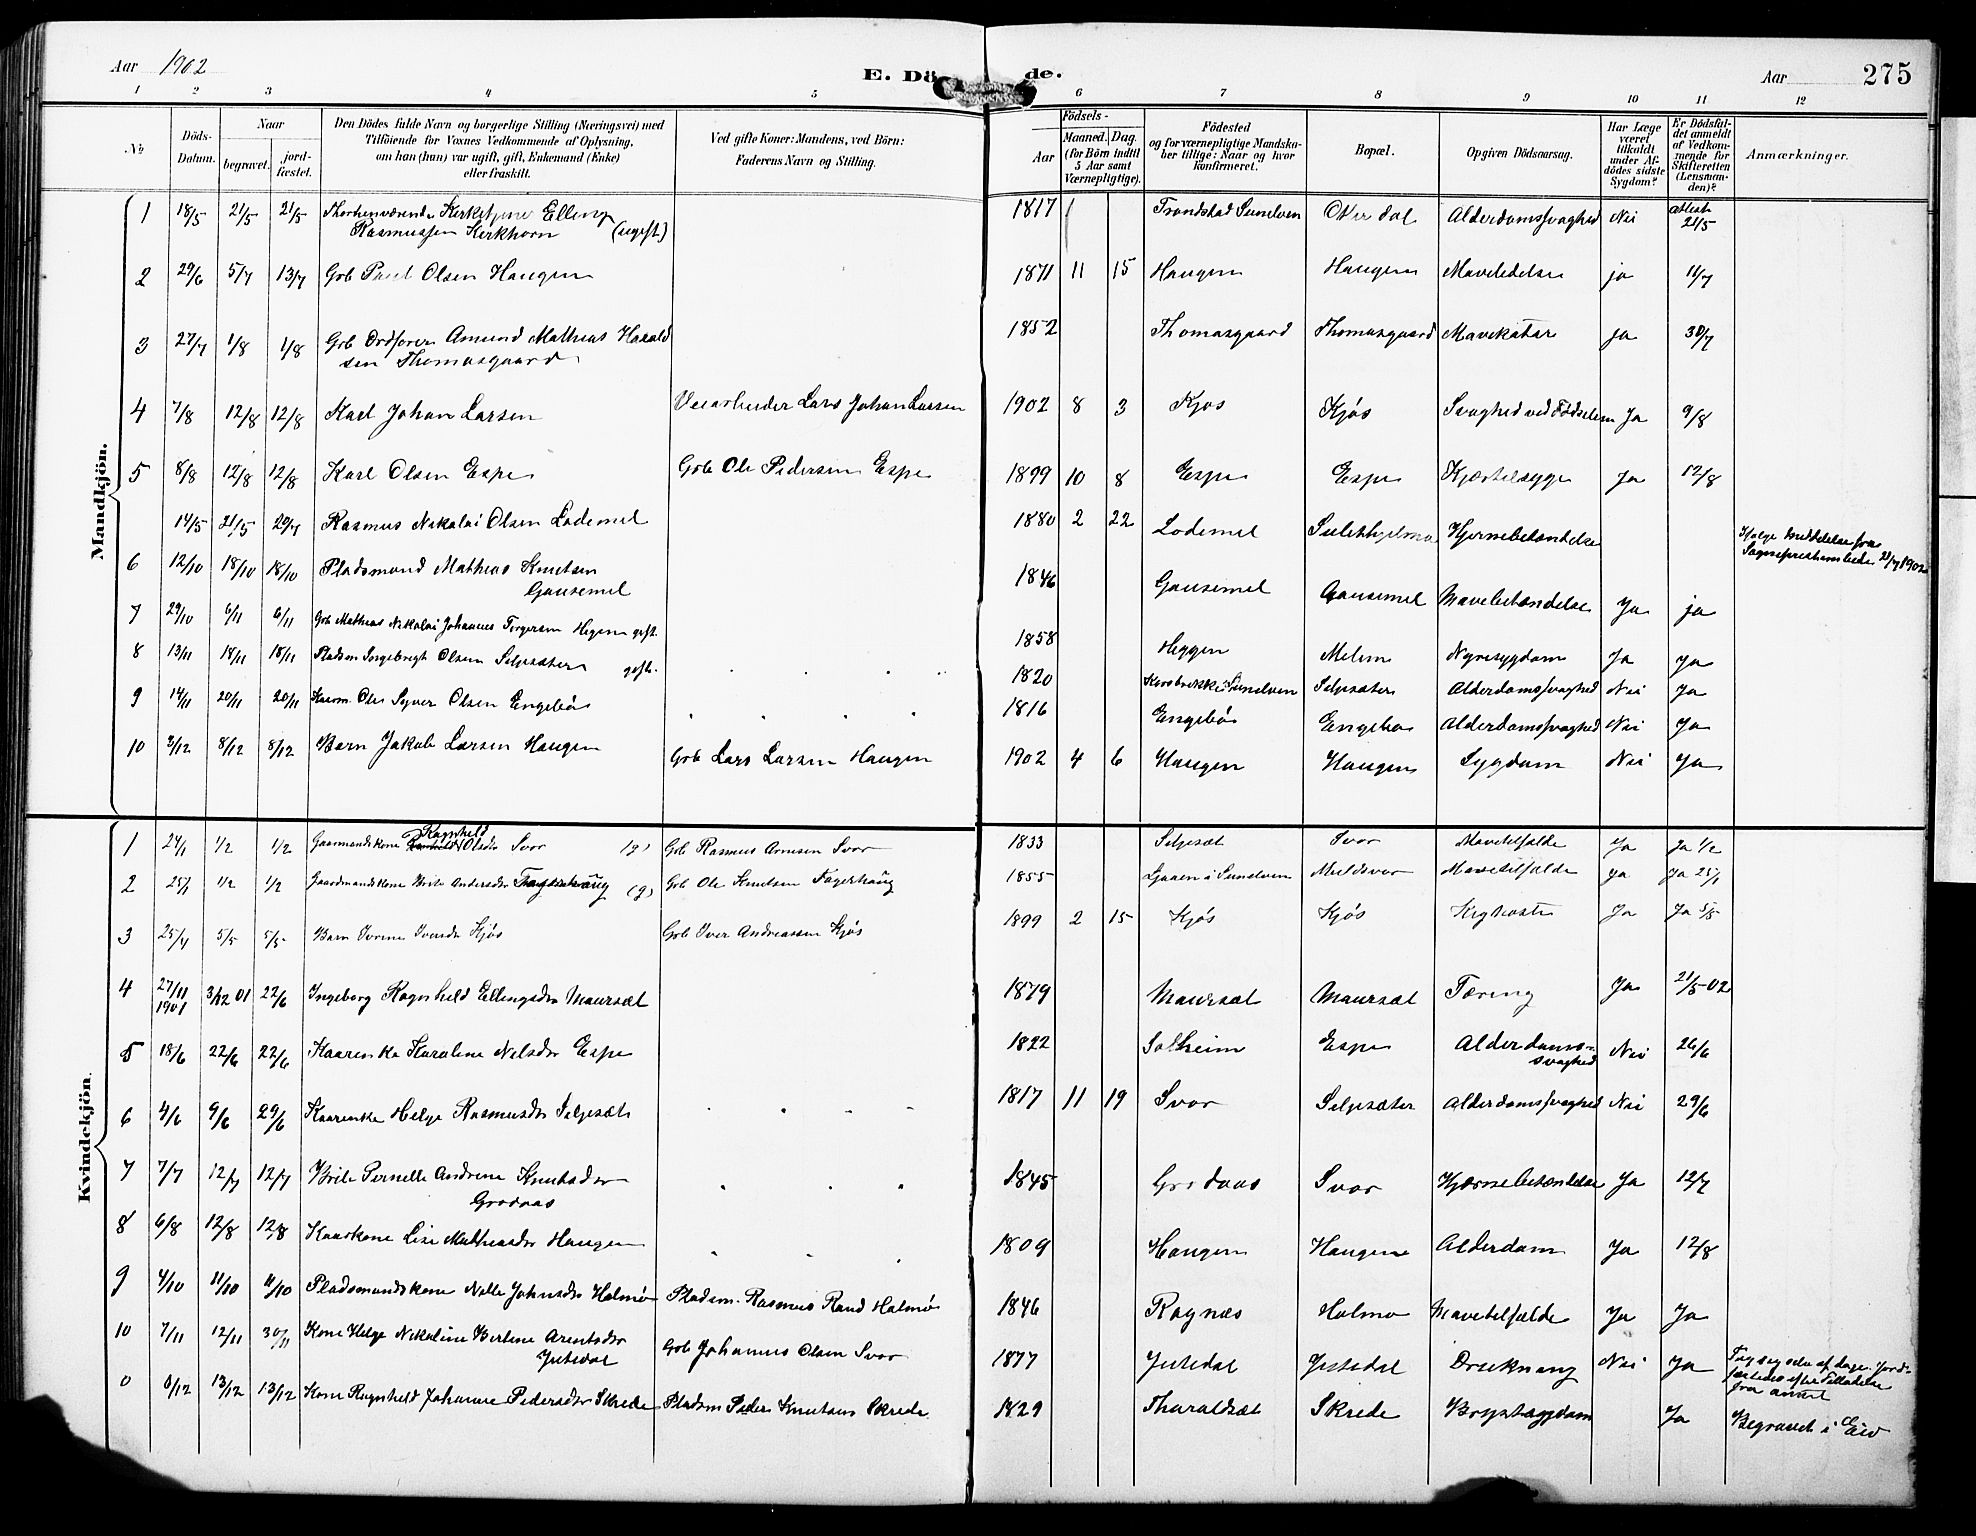 Aar 1902
E. Dö de.
Aar
275
1 2 3 4 5 6 7 8 9 10 11 12
No
Döds-
Datum.
Naar
begravet.
jord-
fæstet.
Den Dödes fulde Navn og borgerlige Stilling (Næringsvei) med
Tilföiende for Voxnes Vedkommende af Oplysning,
om han (hun) var ugift, gift, Enkemand (Enke)
eller fraskilt.
Ved gifte Koner: Mandens, ved Börn:
Faderens Navn og Stilling.
Födsels-
Aar
Maaned. Dag.
(for Börn indtil
5 Aar samt
Værnepligtige).
Födested
og for værnepligtige Mandska-
ber tillige: Naar og hvor
konfirmeret.
Bopæl.
Opgiven Dödsaarsag.
Har Læge
været
tilkaldt
under Af-
dödes sidste
Sygdom?
Er Dödsfal-
det anmeldt
af Vedkom-
mende for
Skifteretten
(Lensman-
den)?
Anmærkninger.
Mandkjön.
1 18/5 21/5 21/5 Elling 1817 Sunelven Alderdomssvaghed Nei attest 21/5
Rasmussen Kirkhorn (ugift)
2 29/6 5/7 13/7 Grb Paul Olsen Haugen 1871 11 15 Haugen Haugen Mavelidelse ja 11/7
3 27/7 1/8 1/8 Grb Ordfører Amund Mathias Harald 1852 Thomasgaard Thomasgaard Mavekatar ja 30/7
sen Thomasgaard
4 7/8 12/8 12/8 Karl Johan Larsen Veiarbeider Lars Johan Larsen 1902 8 3 Kjøs Kjøs Svaghed ved Fødselen Ja 9/8
5 8/8 12/8 12/8 Karl Olsen Espe Grb Ole Pedersen Espe 1899 10 8 Espe Espe Kjertelsyge Ja 12/8
14/5 21/5 29/7 Rasmus Nikolai Olsen Lodemel 1880 2 22 Lodemel Sulitjelma Hjernebetændelse
Ifølge Meddelelse fra
1902
6 12/10 18/10 18/10 Pladsmand Mathias Knutsen 1846 Gausemel Gausemel Mavebetændelse Ja ja
Gausemel
7 29/10 6/11 6/11 Grb Mathias Nikolai Johannes Torgersen gift. 1858 Heggen Melem Nyresygdom Ja ja
8 13/11 18/11 18/11 Pladsm Ingebrigt Olsen Seljesæter gift. 1820 Sunelven Seljesæter Alderdomssvaghed Nei Ja
9 14/11 20/11 20/11 Syver Olsen Engebø 1816 Engebø Engebø Alderdomssvaghed Nei Ja
10 3/12 8/12 8/12 Barn Jakob Larsen Haugen Grb Lars Larsen Haugen 1902 4 6 Haugen Haugen Sygdom Nei Ja
Kvindekjön.
1 24/1 1/2 1/2 Gaarmandskone Ragnhild Olsdr Svor (g) Grb Rasmus Arnesen Svor 1833 Seljesæt Svor Mavetilfælde Ja Ja 1/2
2 25/1 1/2 1/2 Gaardmandskone Brite Andersdr (g) Grb Ole Knutsen Fagerhaug 1855 Ljøen i Sunelven Muldsvor Mavetilfælde ja Ja 25/1
3 25/4 5/5 5/5 Barn Ivrine Iversdr Kjøs Grb Iver Andreassen Kjøs 1899 2 15 Kjøs Kjøs Kighoste Ja Ja 5/5
4 27/11 1901 3/12 01 22/6 Ingeborg Ragnhild Ellingsdr Maursæt 1879 Maursæt Maursæt Tæring Ja 21/5-02
5 18/6 22/6 22/6 Kaarenke Karoline Nilsdr Espe 1822 Solheim Espe Alderdoms-
svaghed Nei 26/6
6 4/6 9/6 29/6 Kaarenke Helge Rasmusdr Seljesæt 1817 11 19 Svor Seljesæter Alderdomssvaghed Nei 29/6
7 7/7 12/7 12/7 Brite Pernelle Andrine Knutsdr 1845 Grodaas Svor Hjernebetændelse Ja 12/7
Grodaas
8 6/8 12/8 12/8 Kaarkone Lise Mathiasdr Haugen 1809 Haugen Haugen Alderdom Ja 12/8
9 4/10 11/10 11/10 Pladsmandskone Nille Johnsdr Holmø Pladsm. Rasmus Rand Holmø 1846 Ragnæs Holmø Mavetilfælde Ja Ja
10 7/11 12/11 30/11 Kone Helge Nikoline Bertine Arentsdr Grb Johannes Olsen Svor 1877 Jutedal Jutedal Drukning Nei Ja
Jutedal
Tog sig selv af dage. Jord-
fæstedes efter Tilladelse
fra amtet
0 8/12 13/12 13/12 Kone Ragnhild Johanne Pedersdr Skrede Pladsm Peder Knutsen Skrede 1829 Tharaldsæt Skrede Brystsygdom Ja Begravet i Eid